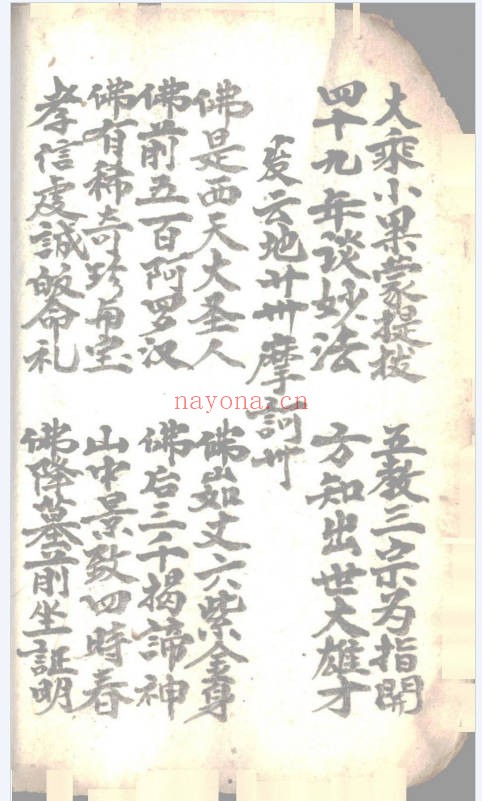 大乘小果蒙提拔 五教三宗为指開
四十九年谈妙法 方知出世大雄才
爰云地廾卅摩訶卅
佛是西天大圣人 佛如丈六紫金身
佛前五百阿罗汉 佛后三千揭諦神
佛有稀奇珍宝 山中景致四時春
孝信虔誠皈命礼 佛降墓前坐証明
nayona.cn